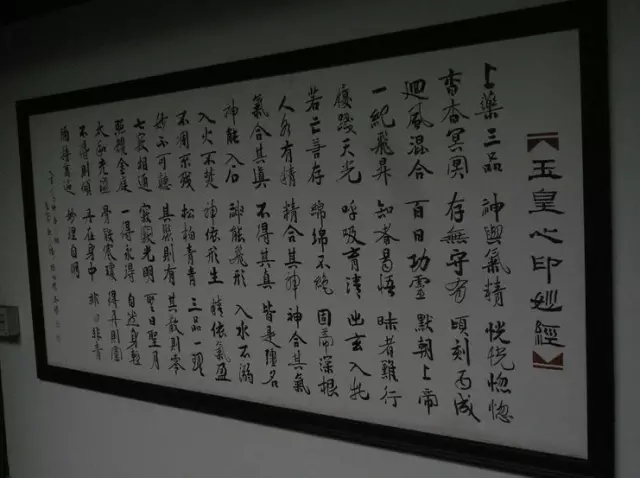 玉皇心印妙經
上藥三品 神與氣精 恍恍惚惚
杳杳冥冥 存無守有 頃刻而成
迴風混合 百日功靈 默朝上帝
一紀飛昇 知者易悟 昧者難行
履踐天光 呼吸育清 出玄入牝
若亡若存 綿綿不絕 固蒂深根
人各有精 精合其神 神合其氣
氣合其真 不得其真 皆是強名
神能入石 神能飛形 入水不溺
入火不焚 神依形生 精依氣盈
不凋不殘 松柏青青 三品一理
妙不可聽 其聚則有 其散則零
七竅相通 竅竅光明 聖日聖月
照耀金庭 一得永得 自然身輕
太和充溢 骨散寒瓊 得丹則靈
不得則傾 丹在身中 非白非青
誦持萬遍 妙理自明